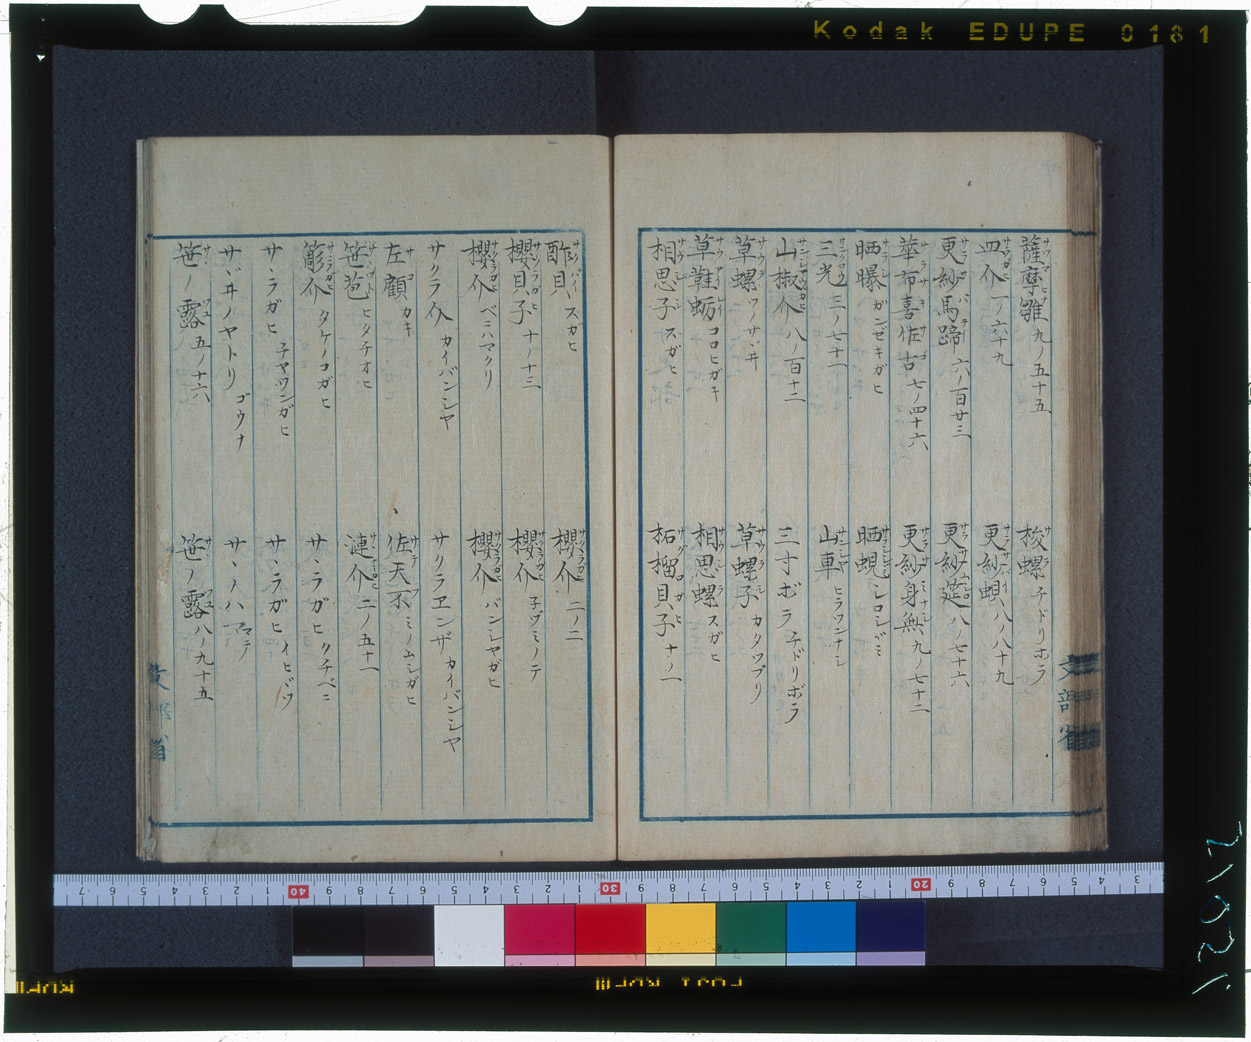 Kodak EDUPE 0181
薩摩雛 九ノ五十五
梭螺 チドリボラ
皿介 一ノ六十九
更紗蜆 八ノ八十九
更紗馬蹄 六ノ百廿三
更紗莚 八ノ七十六
華布喜佐古 七ノ四十六
更紗身無 九ノ七十二
晒曝 ガンゼキガヒ
晒蜆 シロシヾミ
三光 三ノ七十一
山車 ヒラワンナシ
山椒介 八ノ百十二
三寸ボラ チドリボラ
草螺 ツノサヾヰ
草螺子 カタツブリ
草鞋蛎 コロヒガキ
相思螺 スガヒ
相思子 スガヒ
柘榴貝子 十ノ一
文部省
酢貝 スガヒ
櫻介 二ノ二
櫻貝子 十ノ十三
櫻介 子ヅミノテ
櫻介 ベニハマクリ
櫻介 バンシヤガヒ
サクラ介 カイバンシヤ
サクラヱンザ カイバンシヤ
左顧 カキ
佐天不 ミノムシガヒ
笹苞 ヒタチオヒ
漣介 二ノ五十一
彫介 タケノコガヒ
サヽラガヒ クチベニ
サヽラガヒ 子ヤワンガヒ
サヽラガヒ イヒヾツ
サヾヰノヤトリ ゴウナ
サヽノハ マテ
笹ノ露 五ノ十六
笹ノ露 八ノ九十五
文部省